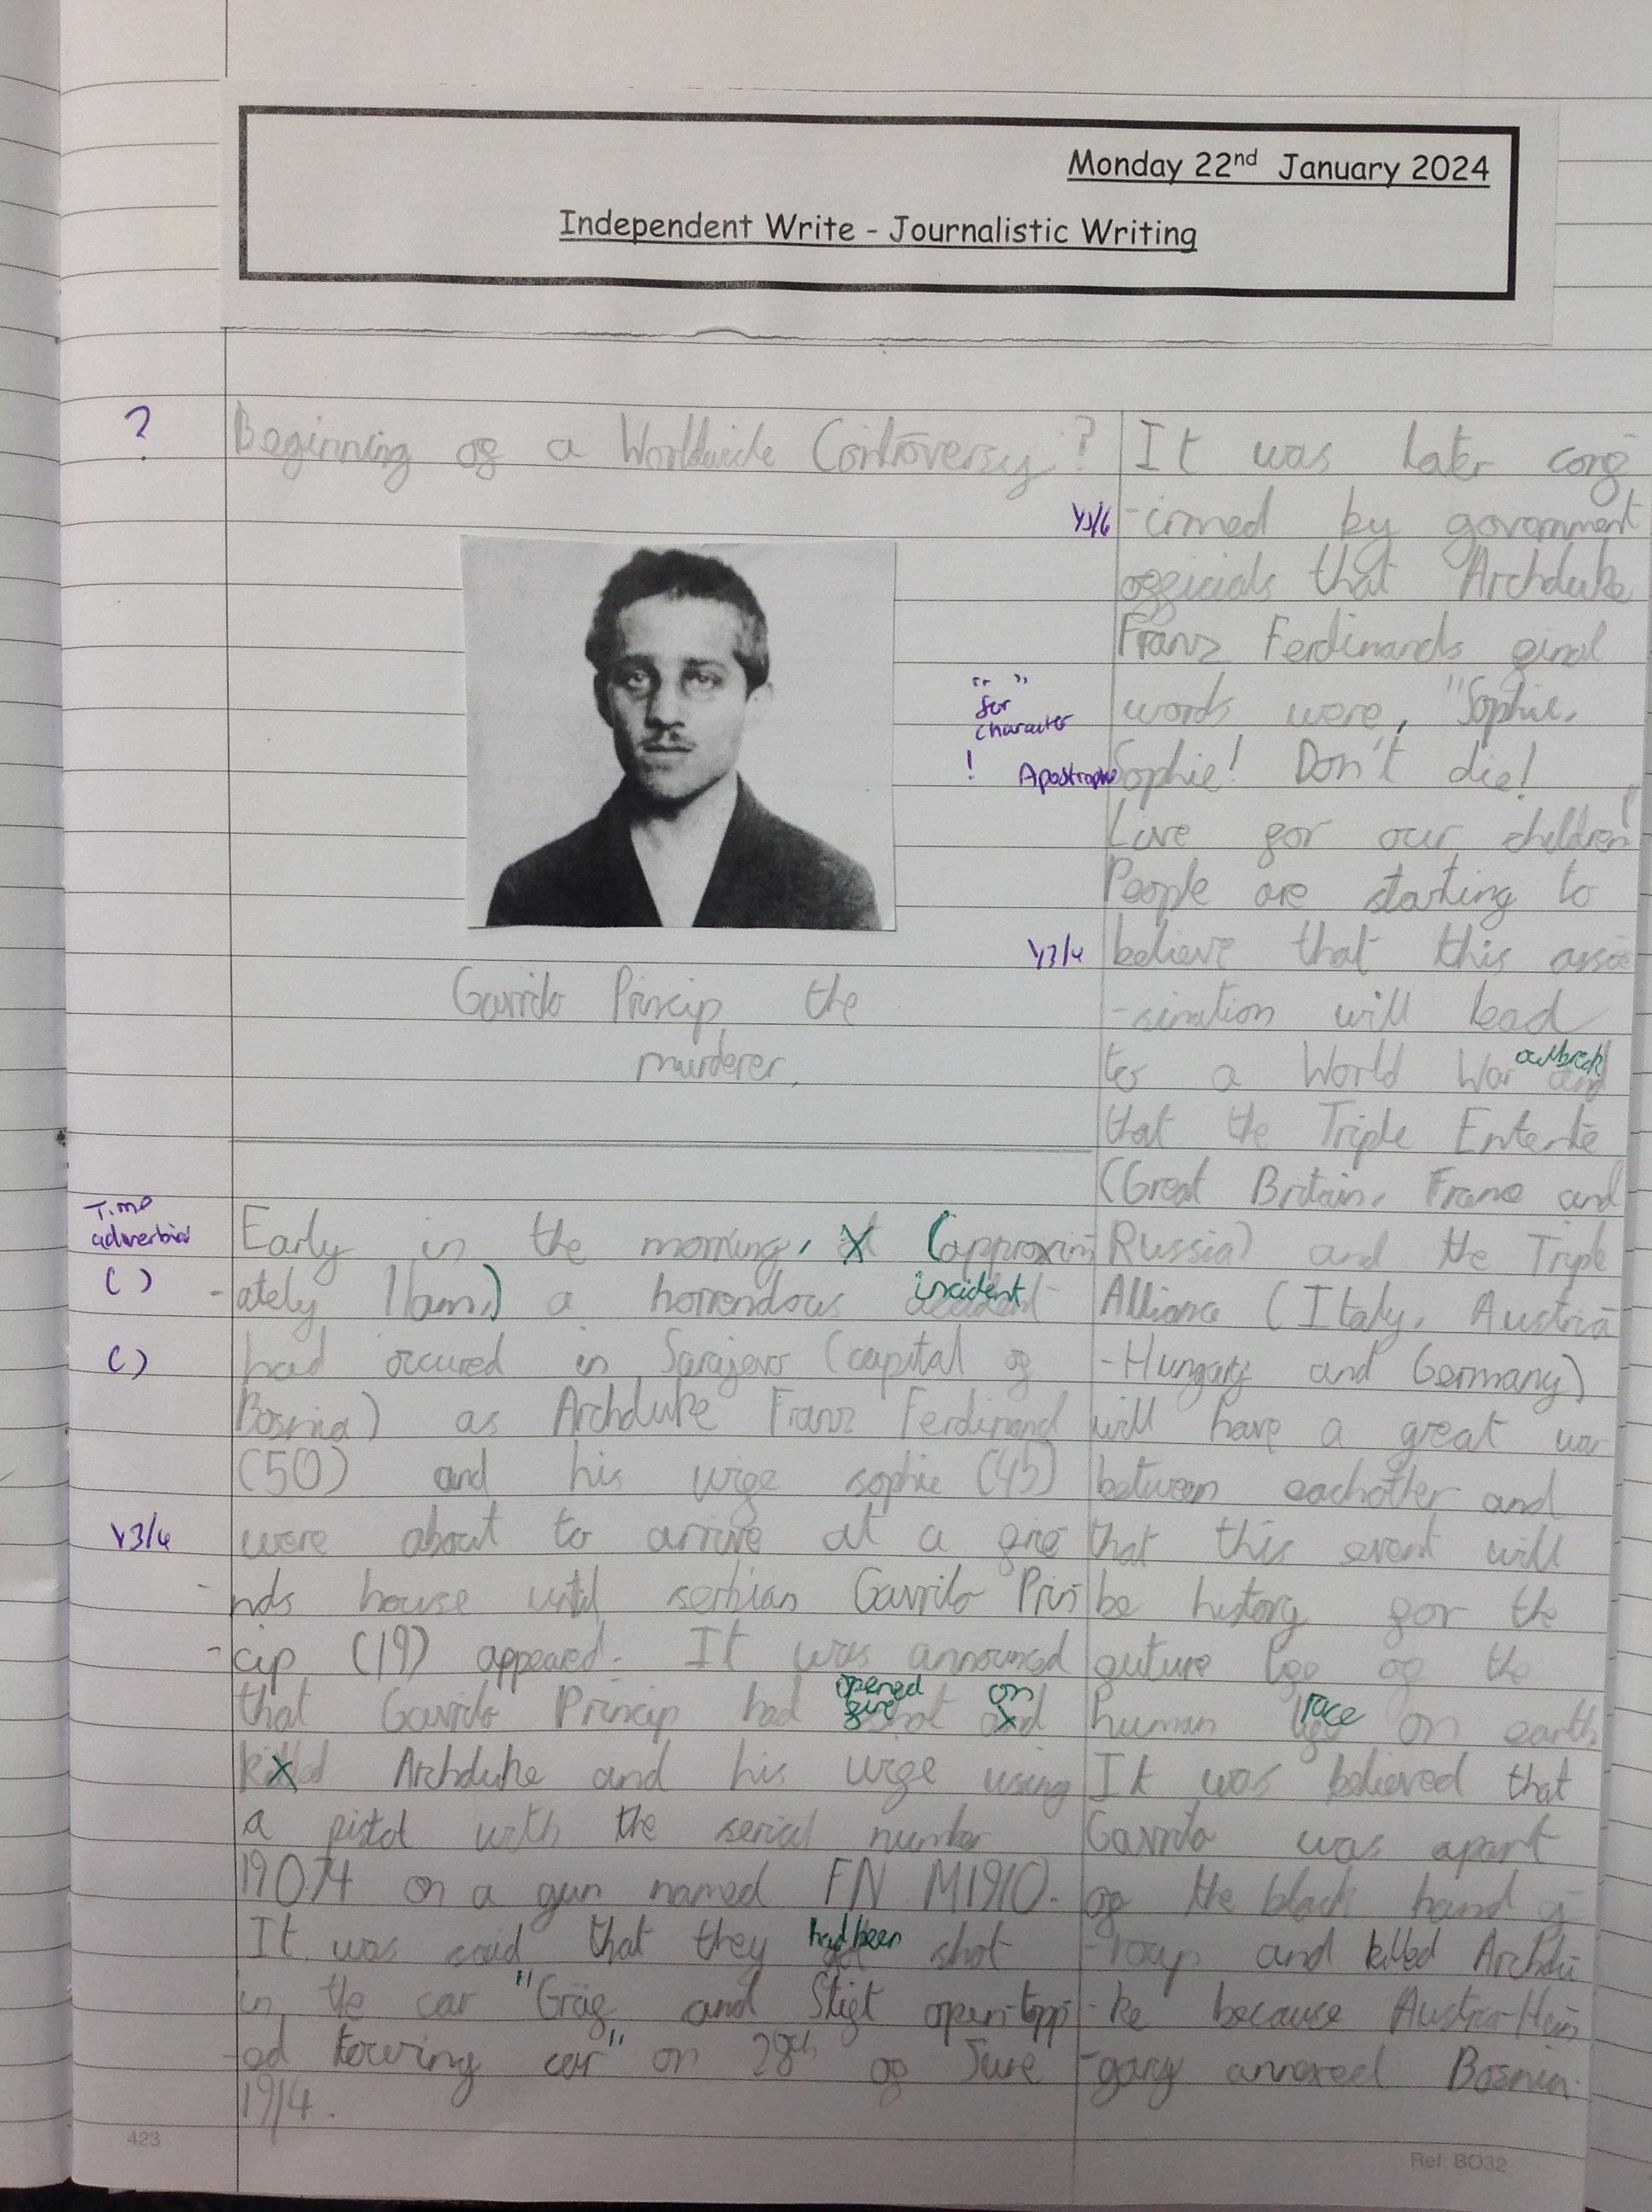 Monday 22nd January 2024
Independent Write - Journalistic Writing
?
Beginning of a Worldwide Controversy?
Gavrilo Princip the
murderer.
Time
adverbial
Early in the morning, (approxim
( )
-ately 11am,) a horrendous incident
( )
had occured in Sarajevo (capital of
Bosnia) as Archduke Franz Ferdinand
(50) and his wife sophie (45)
Y3/4
were about to arrive at a frie
-nds house until serbian Gavrilo Prin
-cip (19) appeared. It was announced
that Gavrilo Princip had opened fire on
Archduke and his wife using
a pistol with the serial number
19074 on a gun named FN M1910.
It was said that they had been shot
in the car "Gräf and Stift open-topp
-ed touring car" on 28th of June
1914.
It was later conf
Y5/6
-irmed by government
officials that Archduke
Franz Ferdinands final
" "
for
character
words were, "Sophie,
! Apostrophe
Sophie! Don't die!
Live for our children"
People are starting to
Y3/4
believe that this assa
-sination will lead
to a World War outbreak
that the Triple Entente
(Great Britain, France and
Russia) and the Triple
Alliance (Italy, Austria
-Hungary and Germany)
will have a great war
between eachother and
that this event will
be history for the
future life of the
human race on earth.
It was believed that
Gavrilo was apart
of the black hand g
-roup and killed Archdu
-ke because Austria-Hun
-gary annexed Bosnia.
423
Ref: BO32